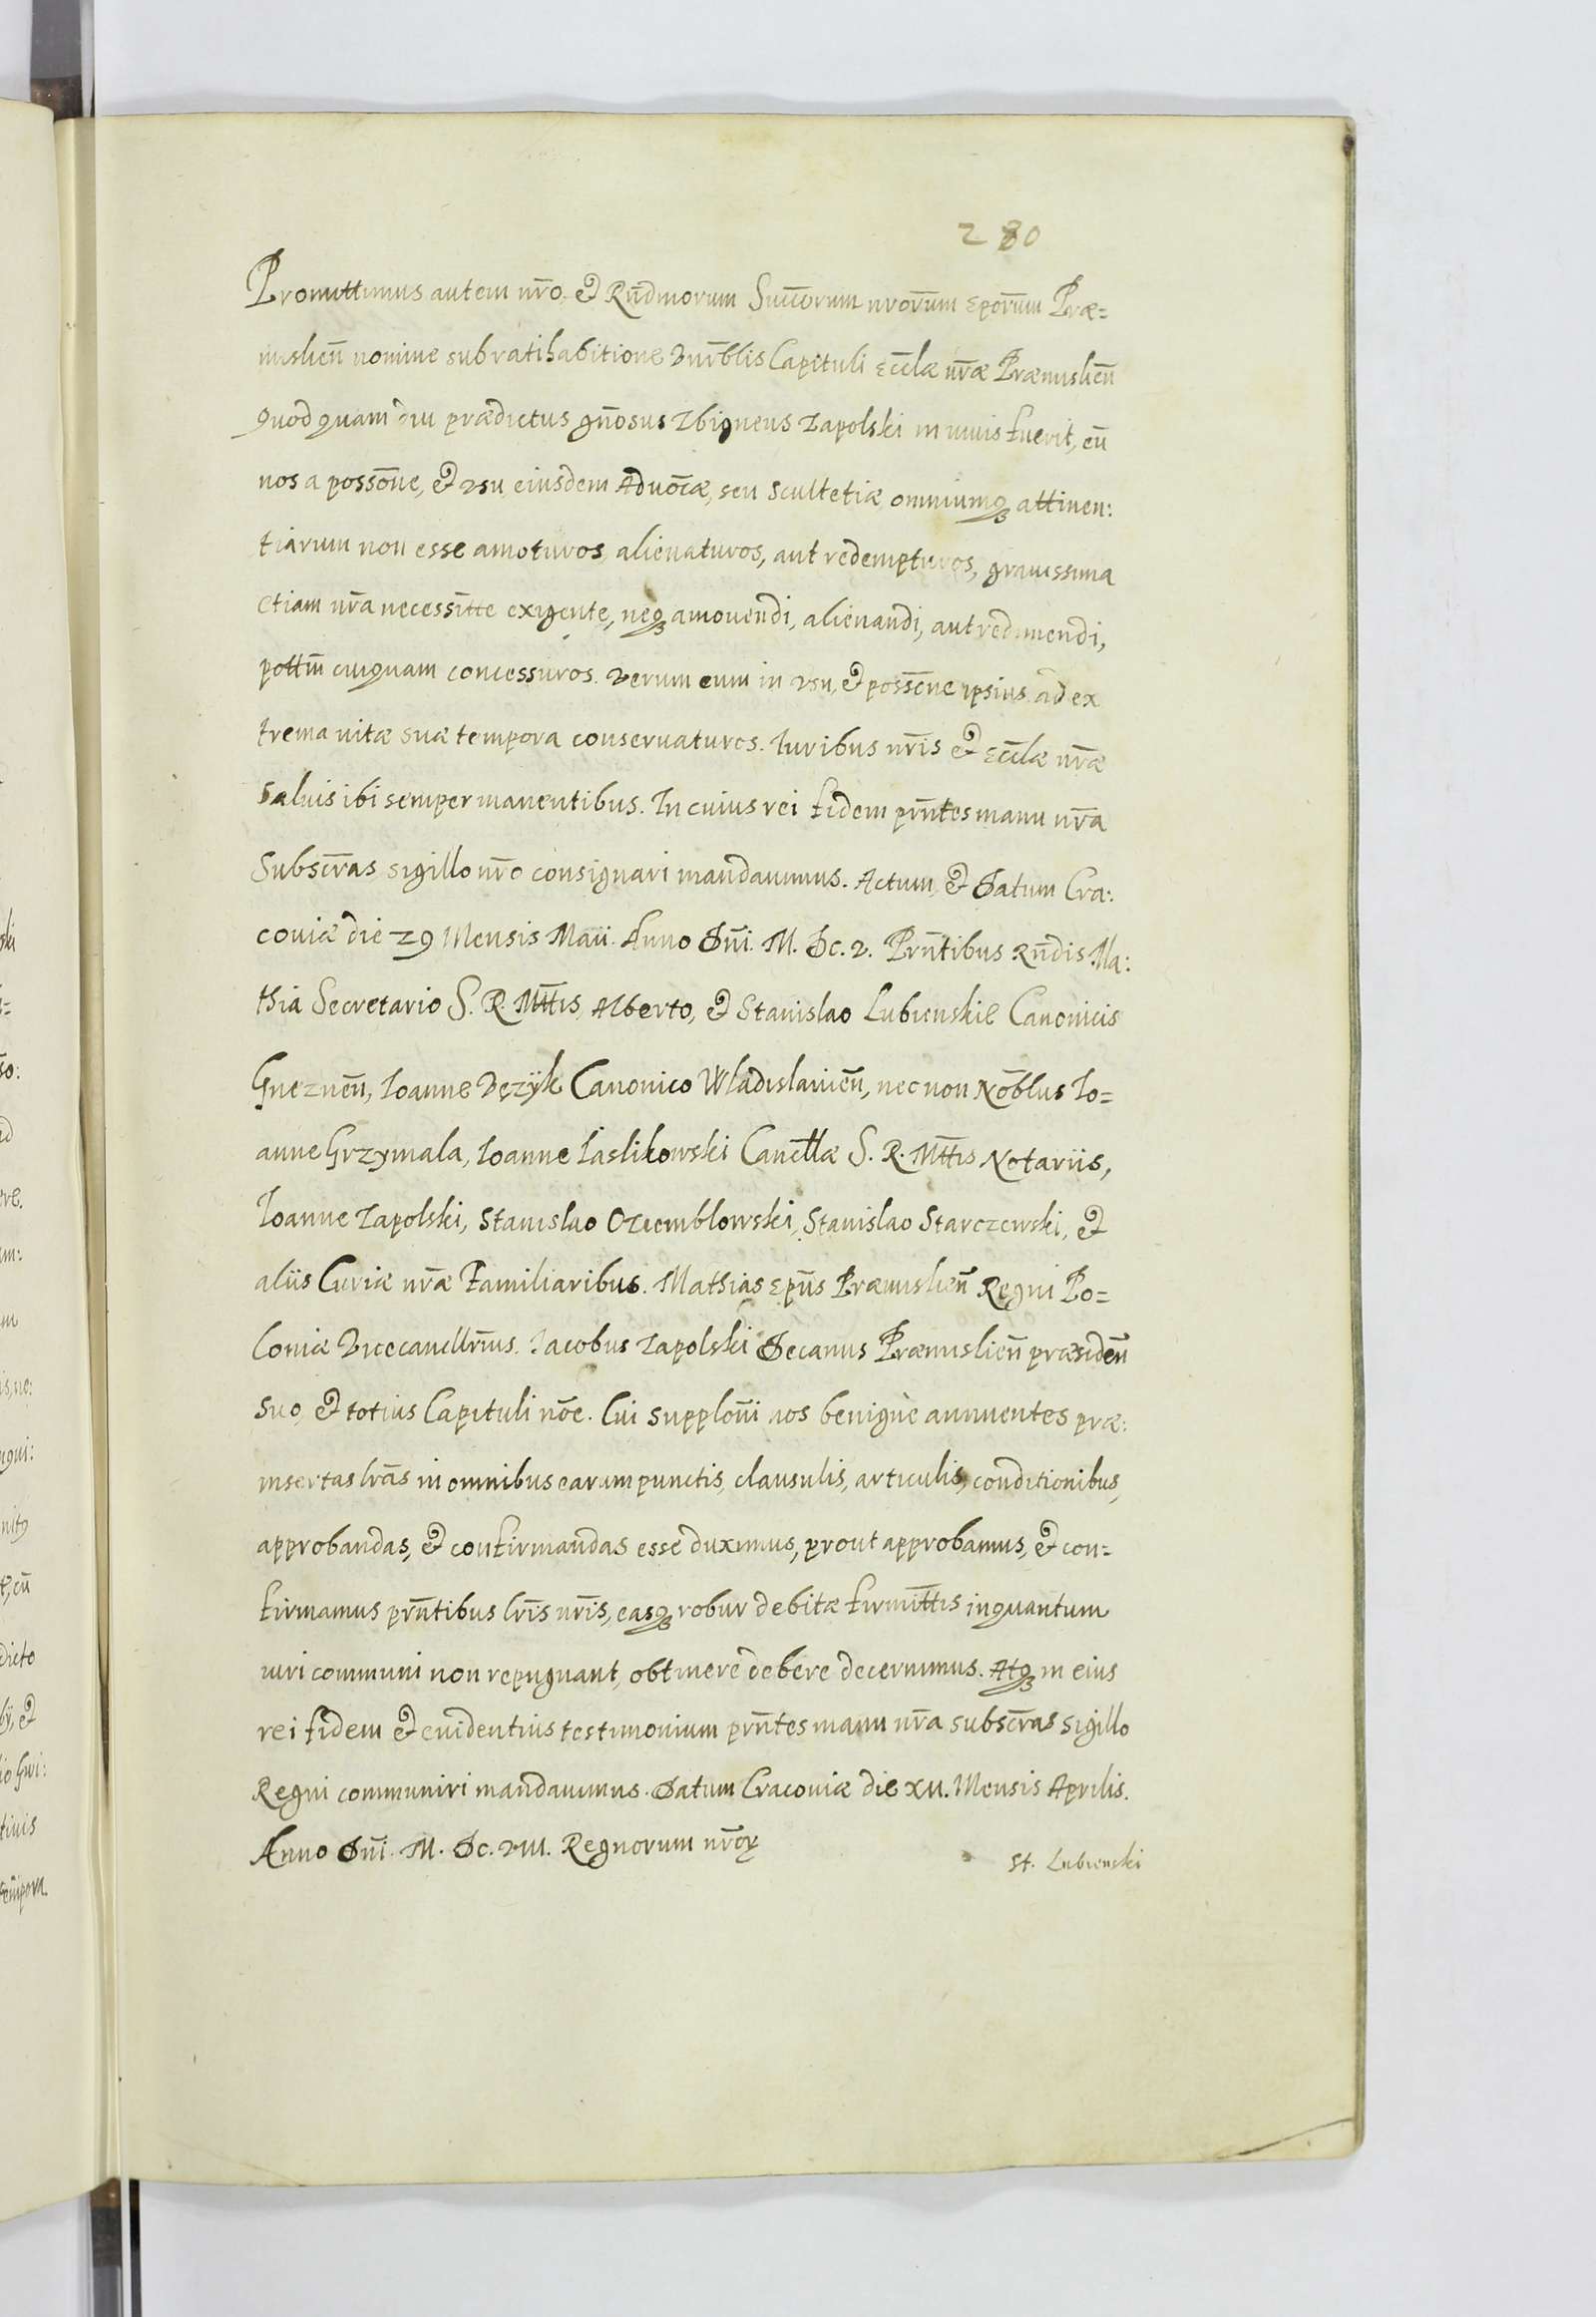 280
Promittimus autem nr̄o, et Rn̄dmorum Succ̄orum nrōrum Epōrum Præ=
mislien̄ nomine sub ratihabitione Vnr̄blis Capituli Eccl̄æ nr̄æ Præmislien̄
quod quam diu prædictus gn̄osus Zbigneus Zapolski in viuis fuerit, eū
nos a possōne, et vsu eiusdem Aduoc̄æ, seu Scultetiæ omniumq; attinen:
tiarum non esse amoturos, alienaturos, aut redempturos, grauissima
etiam nr̄a necessitt̄e exigente, neq; amouendi, alienandi, aut redimendi,
pottm̄ cuiquam concessuros. Verum eum in vsu, et possōne ipsius ad ex
trema vitæ suæ tempora conseruaturos. Iuribus nr̄is et Eccl̄æ nr̄æ
saluis ibi semper manentibus. In cuius rei fidem prn̄tes manu nr̄a
Subscr̄as sigillo nr̄o consignari mandauimus. Actum, et Datum Cra:
couiæ die 29 Mensis Maii. Anno Dn̄i. M. Dc. v. Prn̄tibus Rn̄dis Ma:
thia Secretario S. R. Mtt̄is, Alberto, et Stanislao Lubienskie Canonicis
Gneznen̄, Ioanne Vężyk Canonico Wladislauien̄, nec non Nōblus Io=
anne Grzymala, Ioanne Iaslikowski Canc̄llæ S. R. Mtt̄is Notariis,
Ioanne Zapolski, Stanislao Oziemblowski, Stanislao Starczewski, et
aliis Curiæ nr̄æ Familiaribus. Mathias Epūs Præmislien̄ Regni Po=
loniæ Vicecancllr̄ius. Iacobus Zapolski Decanus Præmislien̄ præsiden̄
suo, et totius Capituli nōe. Cui supplōni nos benigne annuentes præ:
insertas lr̄as in omnibus earum punctis, clausulis, articulis, conditionibus,
approbandas, et confirmandas esse duximus, prout approbamus, et con=
firmamus prn̄tibus lr̄is nr̄is, easq; robur debitæ firmitt̄is inquantum
iuri communi non repugnant, obtinere debere decernimus. Atq; in eius
rei fidem et euidentius testimonium prn̄tes manu nr̄a subscr̄as sigillo
Regni communiri mandauimus. Datum Cracouiæ die XII. Mensis Aprilis.
Anno Dn̄i. M. Dc. VIII. Regnorum nr̄oꝝ
St. Lubienski